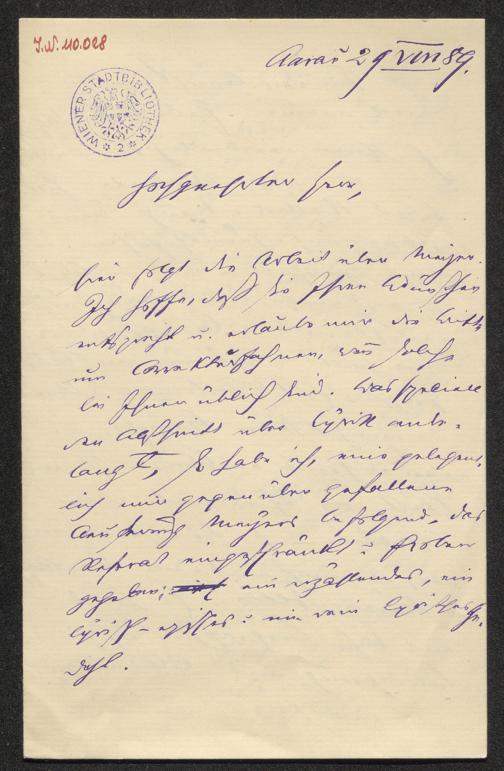 I.N. 110.028
WIENER STADTBIBLIOTHEK
* 2 *
Aarau 29 VIII 89.
Hochgeehrter Herr,
hier folgt die Arbeit über Meyer.
Ich hoffe, daß sie Ihren Wünschen
entspricht u. erlaube mir die Bitte
um Korrekturfahnen, wenn solche
bei Ihnen üblich sind. Was speciell
den Abschnitt über Lyrik anbe-
langt, so habe ich, eine gelegent-
lich mir gegenüber gefallene
Äußerung Meyers befolgend, das
Referat eingeschränkt u. Proben
gegeben; ein erzählendes, ein
lyrisch-episches u. ein rein lyrisches Ge-
dicht.